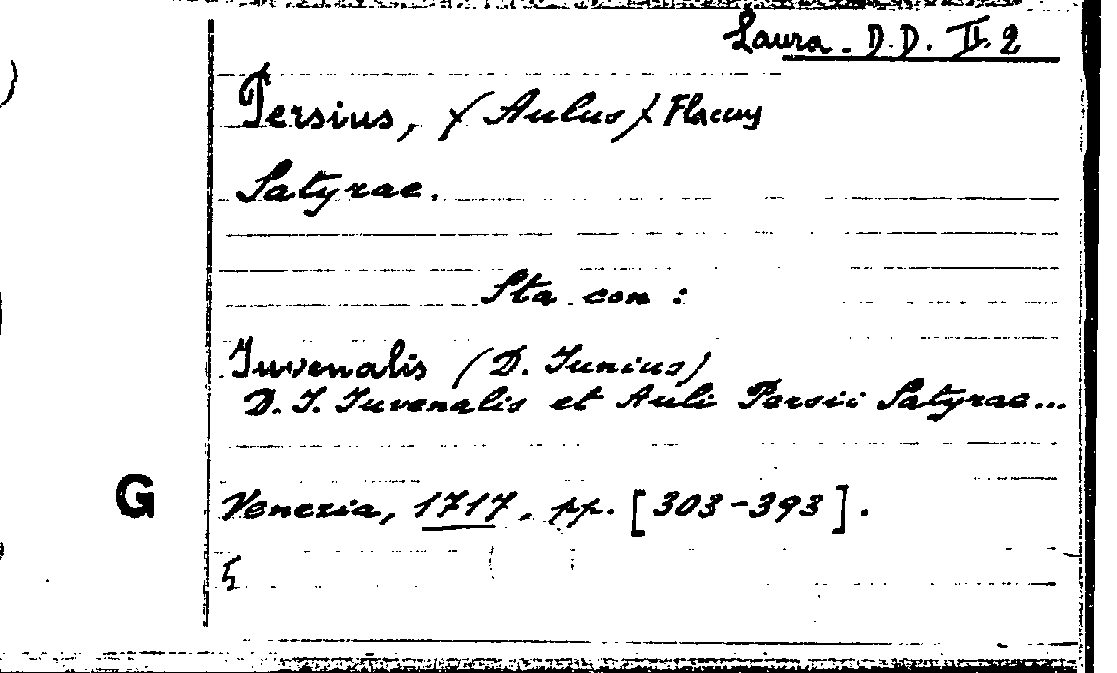 Laura. D.D. II. 2
Persius, (Aulus) Flaccus
Satyrae.
Sta con :
Iuvenalis (D. Iunius)
D. I. Iuvenalis et Auli Persii Satyrae...
G
Venezia, 1717, pp. [303-393].